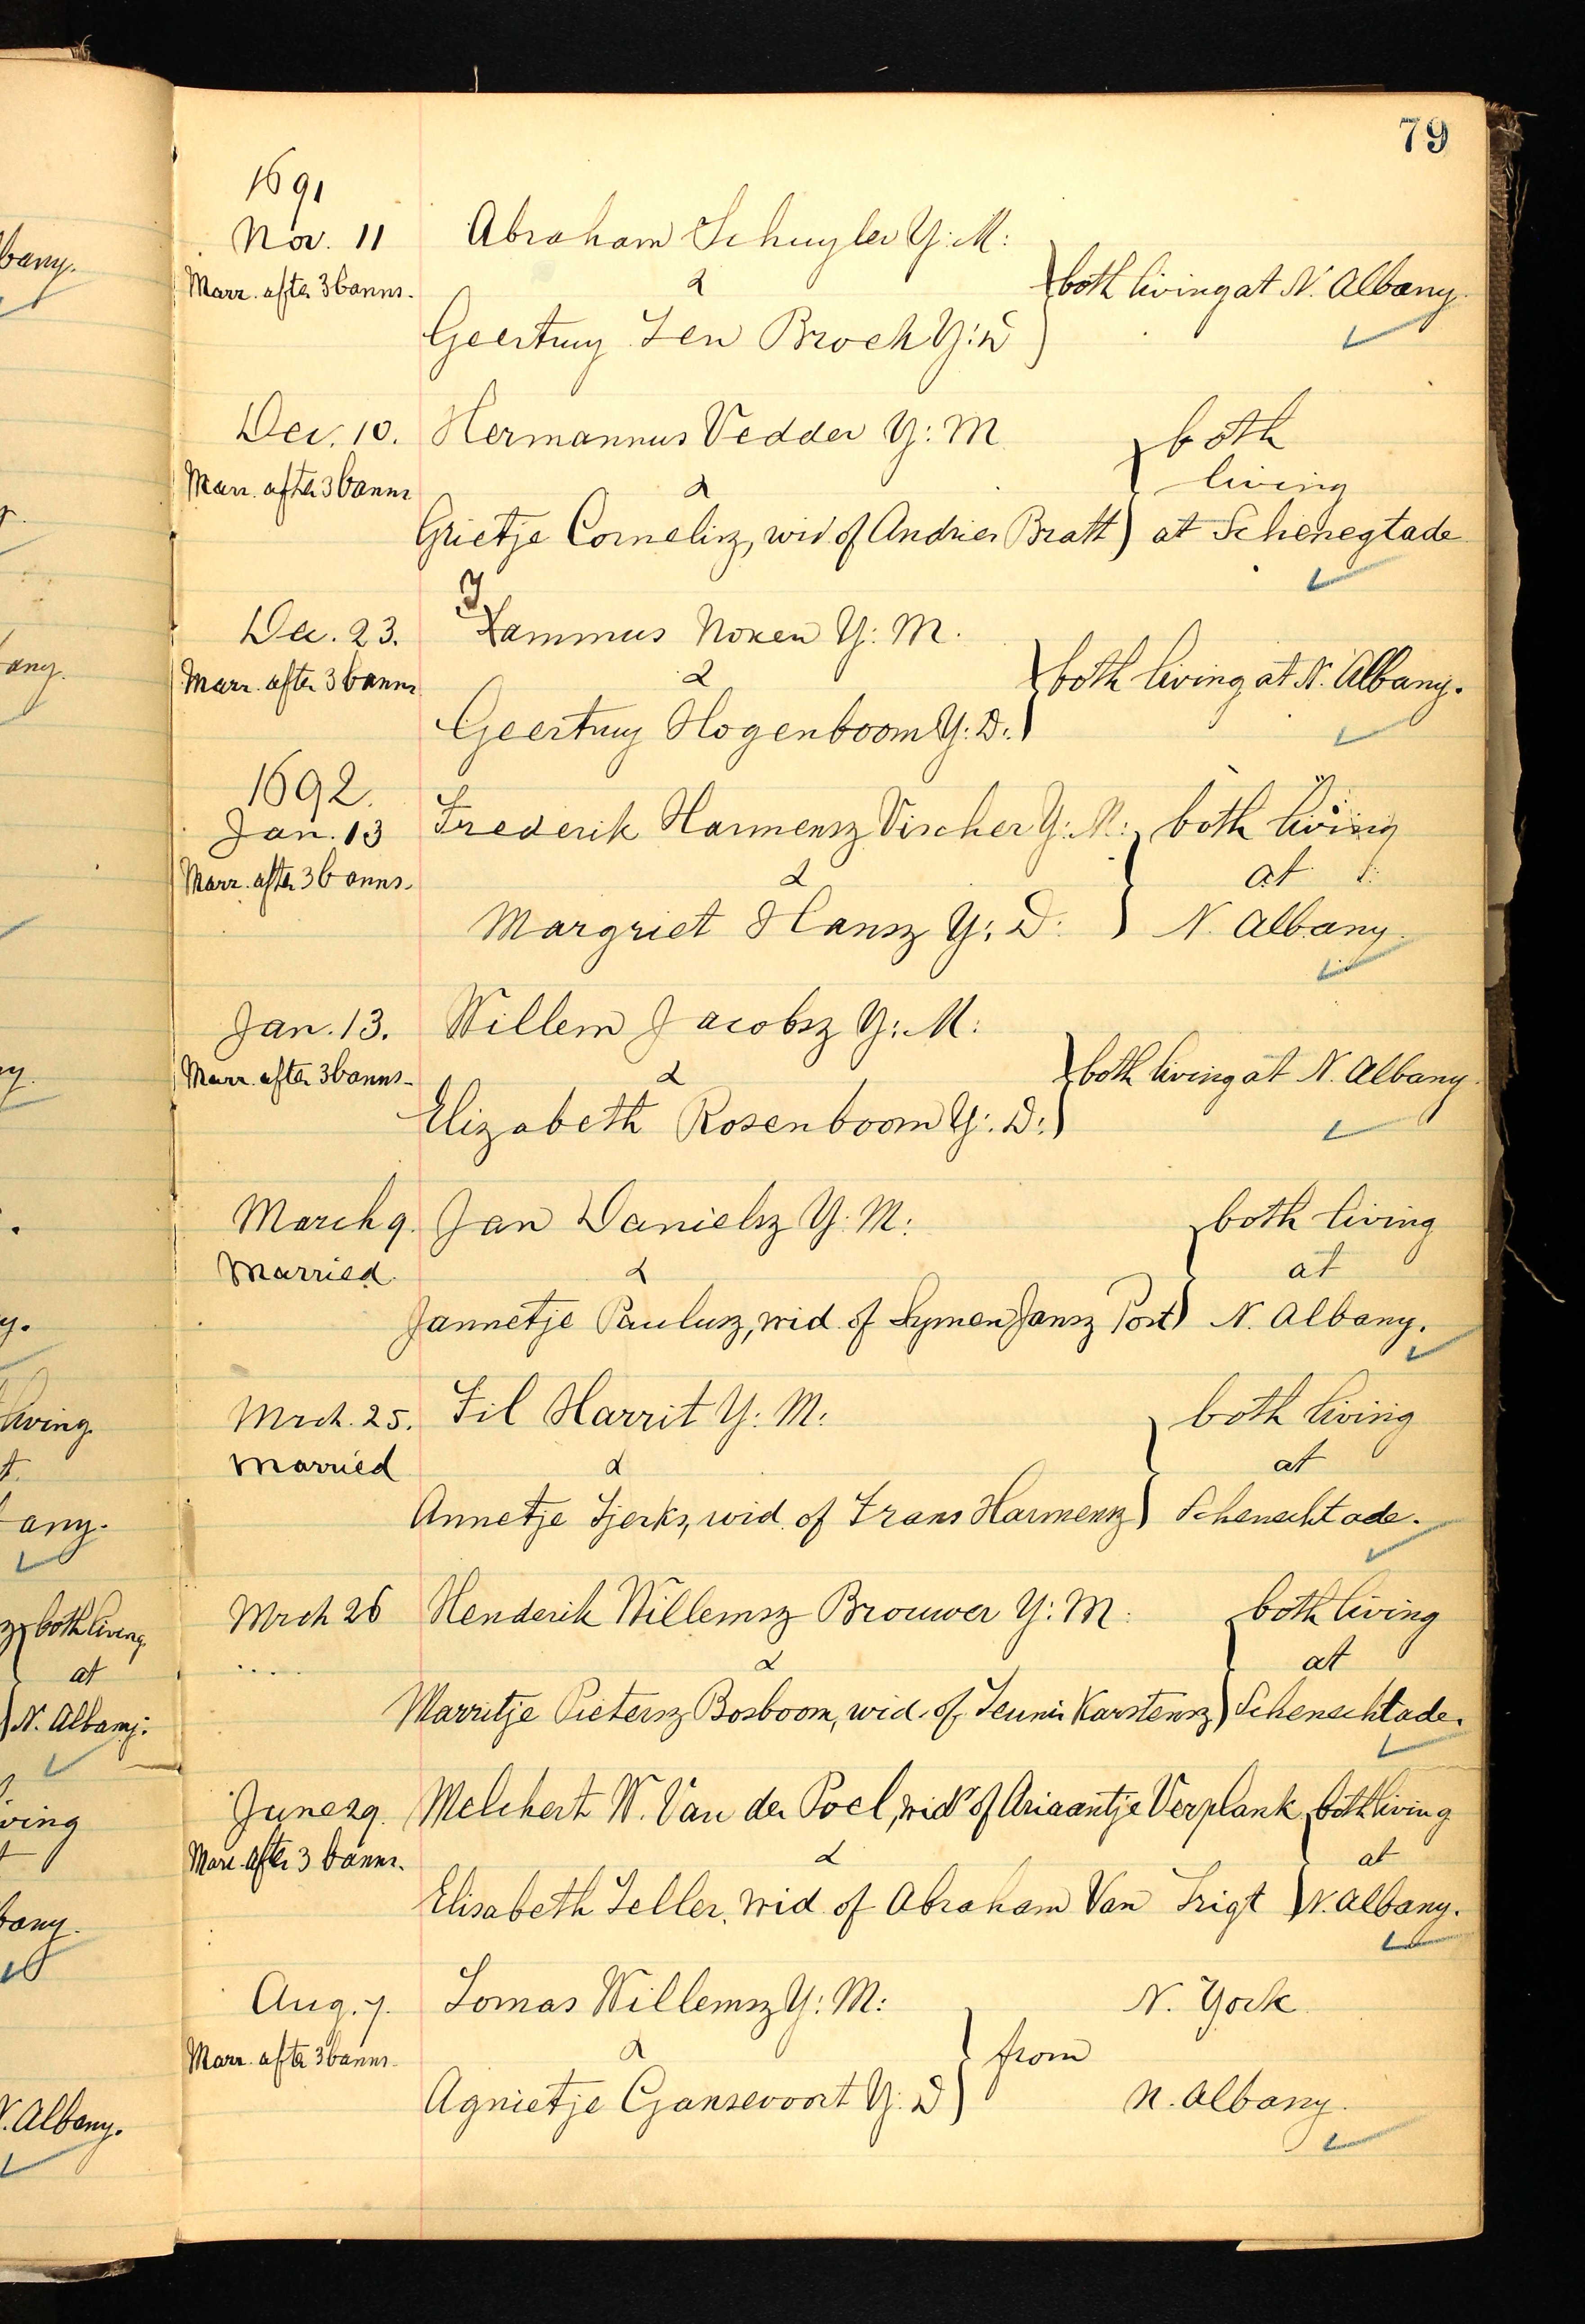 79
1691
Nov. 11 Abraham Schuyler Y: M:
Marr. after 3 banns. & both living at N. Albany.
Geertruy Ten Broek Y: D
Dec. 10. Hermannus Vedder Y: M both
Marr. after 3 banns & living
Grietje Cornelisz, wid. of Andries Bratt) at Schenegtade
Dec. 23. Tammus Noxen Y: M.
Marr. after 3 banns & both living at N. Albany.
Geertruy Hogenboom Y: D:
1692.
Jan. 13 Frederik Harmensz Vischer Y: M: both living
Marr. after 3 banns. & at
Margriet Hansz Y: D: N. Albany.
Jan. 13. Willem Jacobsz Y: M:
Marr. after 3 banns- & both living at N. Albany.
Elizabeth Rosenboom Y: D:
March 9. Jan Danielsz Y: M: both living
Married. & at
Jannetje Paulusz, wid. of Symen Jansz Post) N. Albany.
Mrch. 25. Fil Harrit Y: M: both living
Married & at
Annetje Tjerks, wid. of Frans Harmensz) Schenechtade.
Mrch 26 Henderik Willemsz Brouwer Y: M: both living
.... & at
Marritje Pietersz Bosboom, wid. of Teunis Karstensz) Schenechtade.
June 29. Melchert W. Van der Poel, widr of Ariaantje Verplank both living
Marr. after 3 banns. & at
Elisabeth Teller, wid. of Abraham Van Trigt N. Albany.
Aug. 7. Tomas Willemsz Y: M: N. York
Marr. after 3 banns. & from
Agnietje Gansevoort Y: D N. Albany.
bany.
any.
living
any.
both living
at
N. Albany.
ving
bany.
N. Albany.